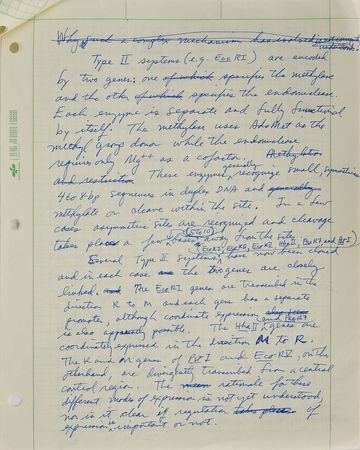 Why such a complex mechanism has evolved is not understood.
Type II systems (e.g. EcoRI) are encoded
by two genes: one of which specifies the methylase
and the other of which specifies the endonuclease.
Each enzyme is separate and fully functional
by itself. The methylase uses AdoMet as the
methyl group donor while the endonuclease
requires only Mg++ as a cofactor. Methylation
and restriction These enzymes generally recognize small, symmetric
4 to 8 bp sequences in duplex DNA and generally
methylate or cleave within the site. In a few
cases asymmetric sites are recognized and cleavage
takes place a few bases (5 to 10) away from the site.
Several Type II systems (EcoRI, EcoRV, HhaII, PaeR7 and PstI) have now been cloned
and in each case the two genes are closely
linked. The EcoRI genes are transcribed in the
direction R to M and each gene has a separate
promoter, although coordinate expression
is also apparently possible. The HhaII and PaeR7 genes are
coordinately expressed in the direction M to R.
The R and M genes of PstI and EcoRV, on the
other hand, are divergently transcribed from a central
control region. The rationale for these
different modes of expression is not yet understood,
nor is it clear if regulation takes place of
expression is important or not.